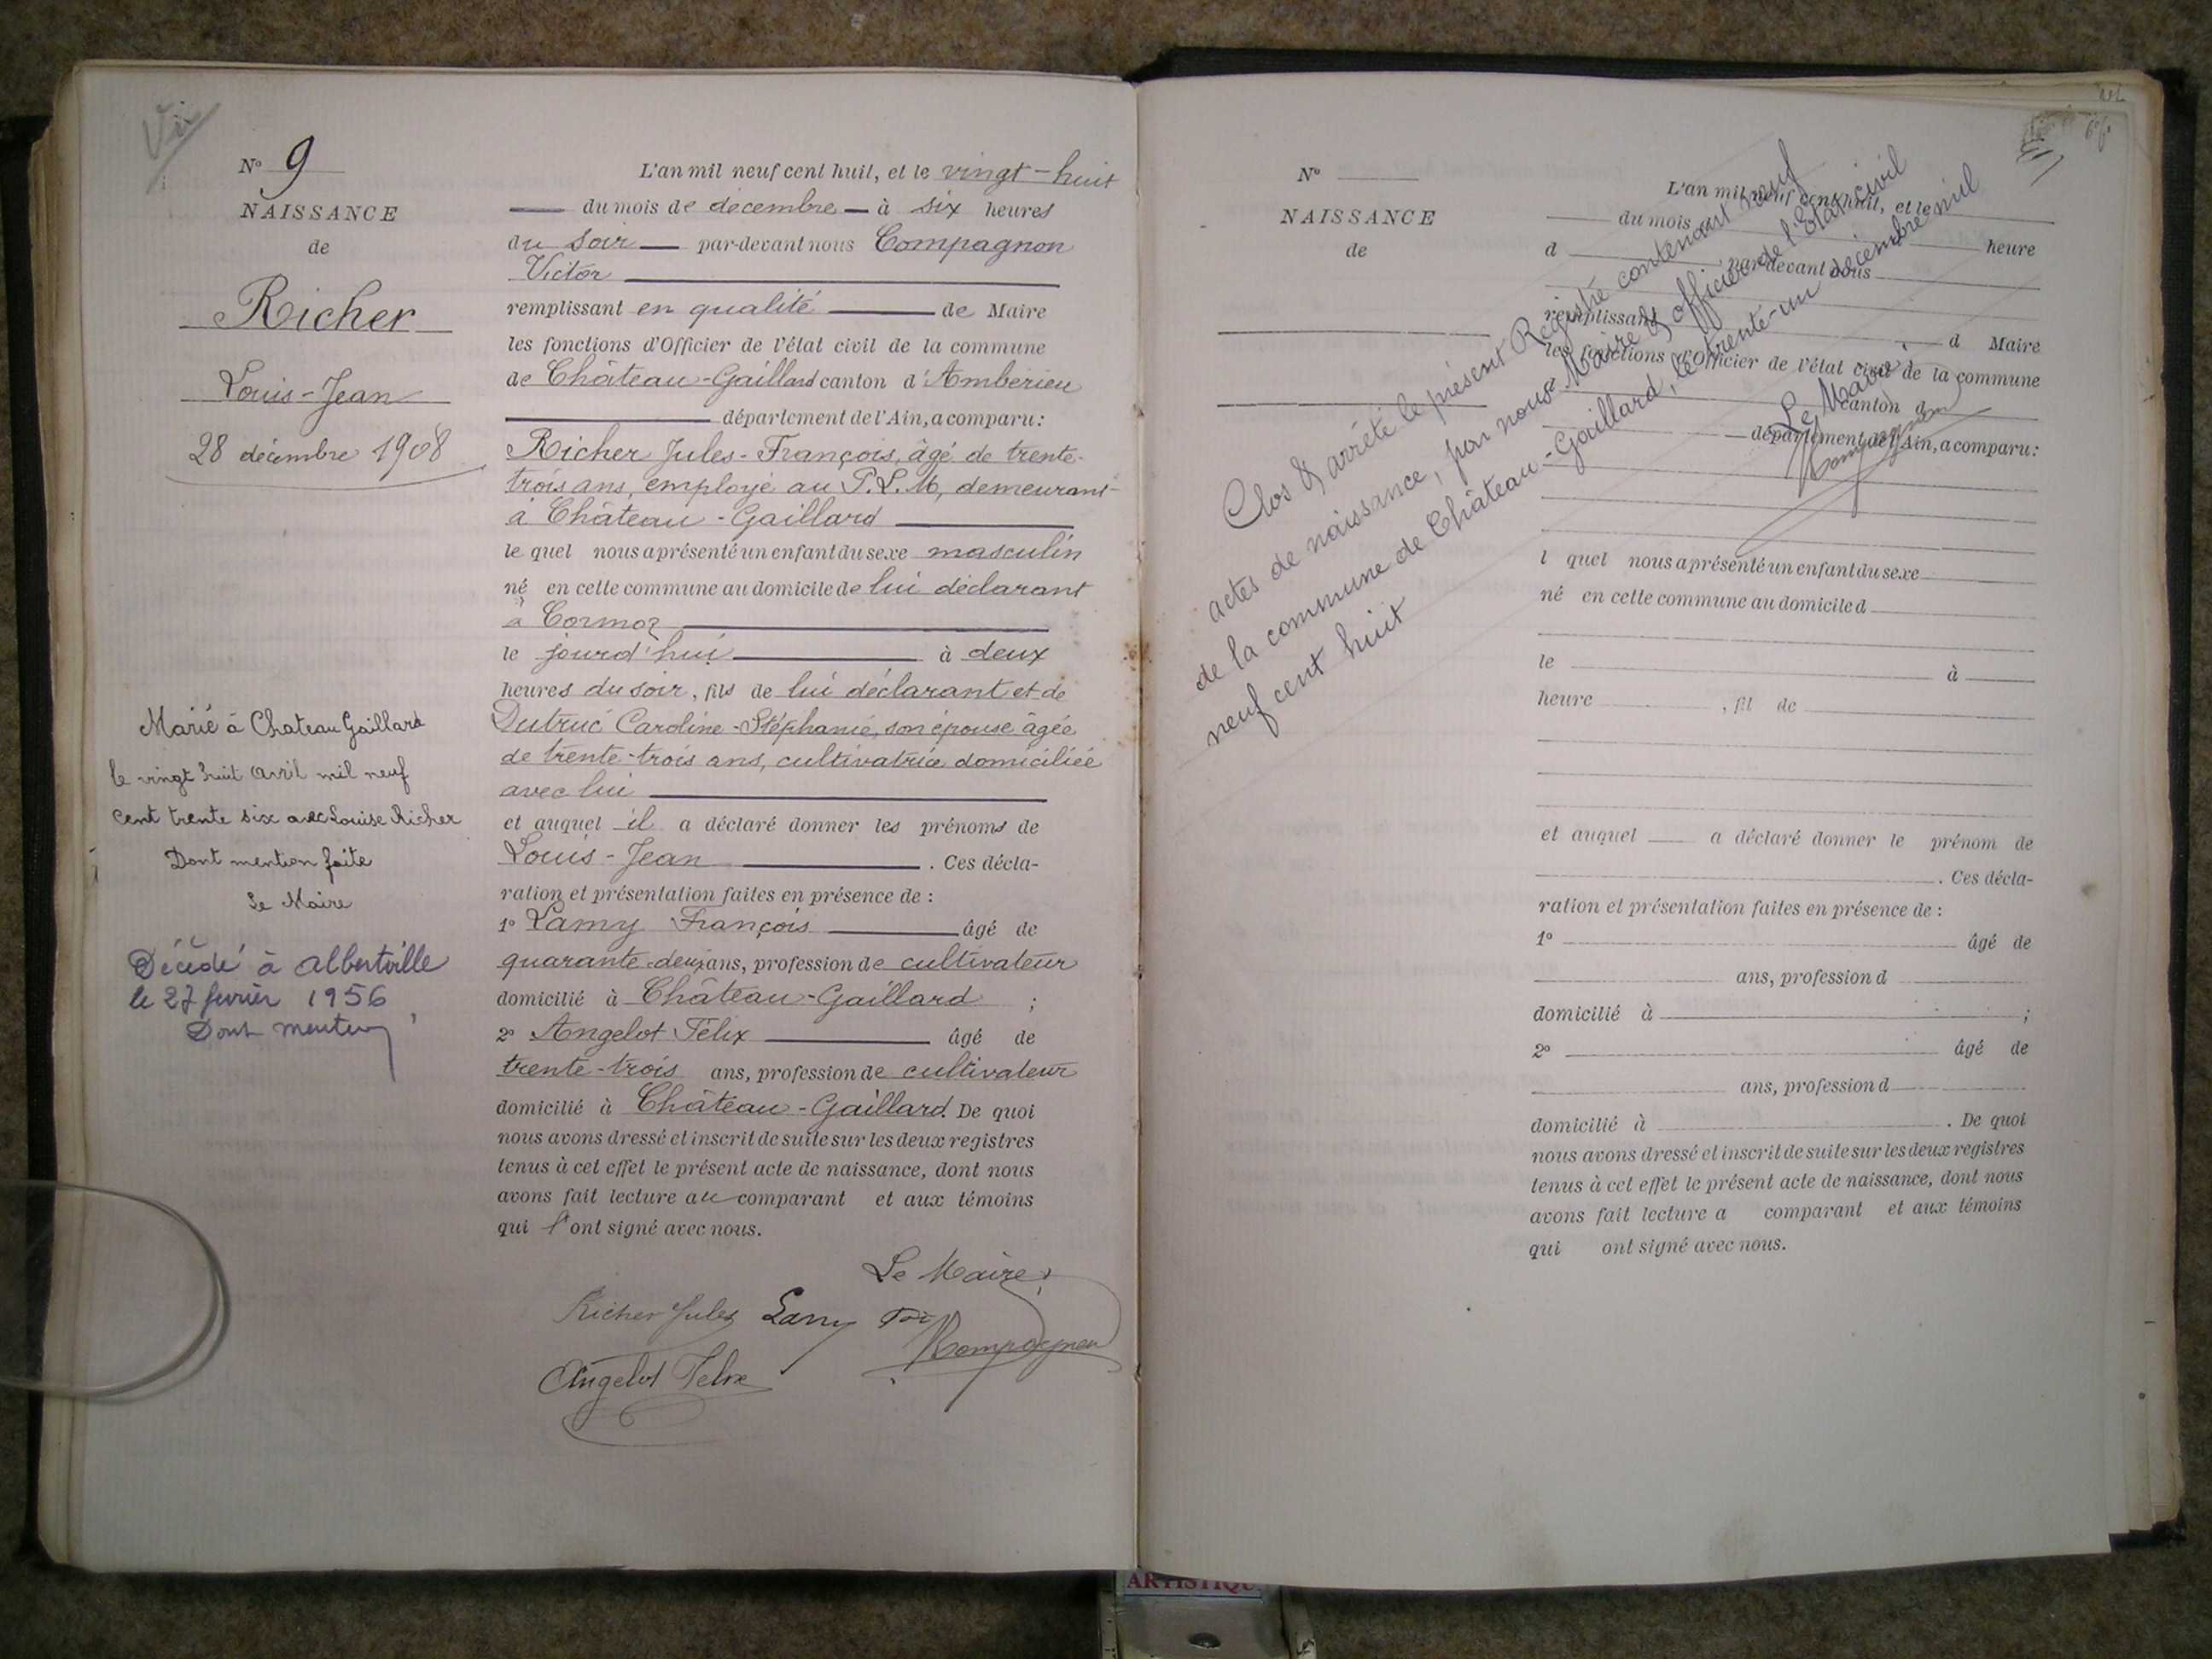 Vu
N° 9
NAISSANCE
de
Richer
Louis-Jean
28 décembre 1908
Marié à Chateau Gaillard
le vingt huit avril mil neuf
cent trente six avec Louise Richer
Dont mention faite
Le Maire
Décédé à Albertville
le 27 février 1956
Dont mention
L'an mil neuf cent huit, et le vingt-huit
du mois de décembre à six heures
du soir par-devant nous Compagnon
Victor
remplissant en qualité de Maire
les fonctions d'Officier de l'état civil de la commune
de Château-Gaillard canton d'Ambérieu
département de l'Ain, a comparu :
Richer Jules-François, âgé de trente-
trois ans, employé au P.L.M, demeurant
à Château-Gaillard
lequel nous a présenté un enfant du sexe masculin
né en cette commune au domicile de lui déclarant
à Cormoz
le jourd'hui à deux
heures du soir, fils de lui déclarant et de
Dutruc Caroline-Stéphanie, son épouse âgée
de trente-trois ans, cultivatrice domiciliée
avec lui
et auquel il a déclaré donner les prénoms de
Louis-Jean. Ces décla-
ration et présentation faites en présence de :
1° Lamy François âgé de
quarante-deux ans, profession de cultivateur
domicilié à Château-Gaillard ;
2° Angelot Félix âgé de
trente-trois ans, profession de cultivateur
domicilié à Château-Gaillard. De quoi
nous avons dressé et inscrit de suite sur les deux registres
tenus à cet effet le présent acte de naissance, dont nous
avons fait lecture au comparant et aux témoins
qui l'ont signé avec nous.
Le Maire,
Richer Jules Lamy Foi Compagnon
Angelot Felix
N°
NAISSANCE
de
L'an mil neuf cent huit, et le
du mois d
d heure
par-devant nous
remplissant d Maire
les fonctions d'Officier de l'état civil de la commune
d canton d
département de l'Ain, a comparu :
l quel nous a présenté un enfant du sexe
né en cette commune au domicile d
le à
heure , fil de
et auquel a déclaré donner le prénom de
. Ces décla-
ration et présentation faites en présence de :
1° âgé de
ans, profession d
domicilié à ;
2° âgé de
ans, profession d
domicilié à . De quoi
nous avons dressé et inscrit de suite sur les deux registres
tenus à cet effet le présent acte de naissance, dont nous
avons fait lecture a comparant et aux témoins
qui ont signé avec nous.
Clos & arrêté le présent Registre contenant neuf
actes de naissance, par nous Maire & officier de l'Etat civil
de la commune de Château-Gaillard, le trente-un décembre mil
neuf cent huit
Le Maire,
Compagnon
ARTISTIQU